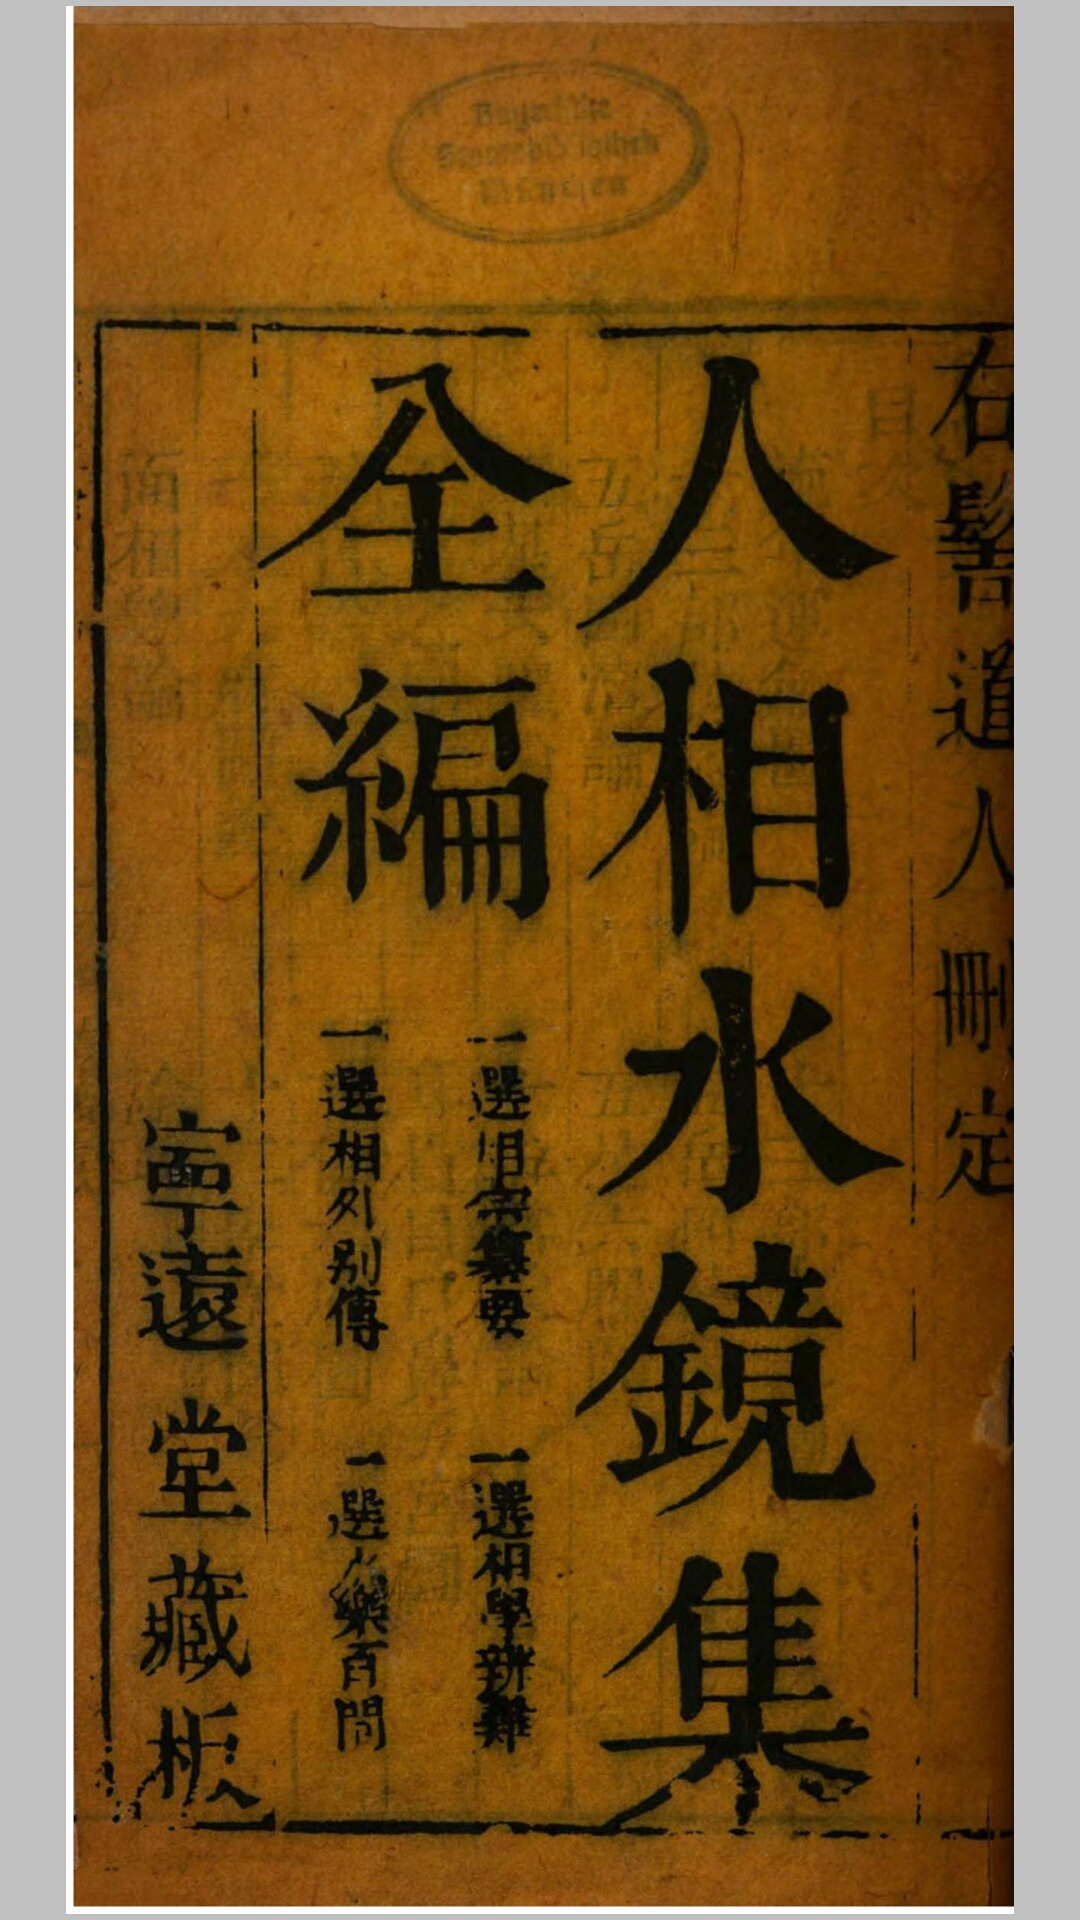 右髻道人刪定
人相水鏡集
全編
一選相宗纂要
一選相學辨難
一選相外別傳
一選永樂百問
寧遠堂藏板
Bayerische
Staatsbibliothek
München